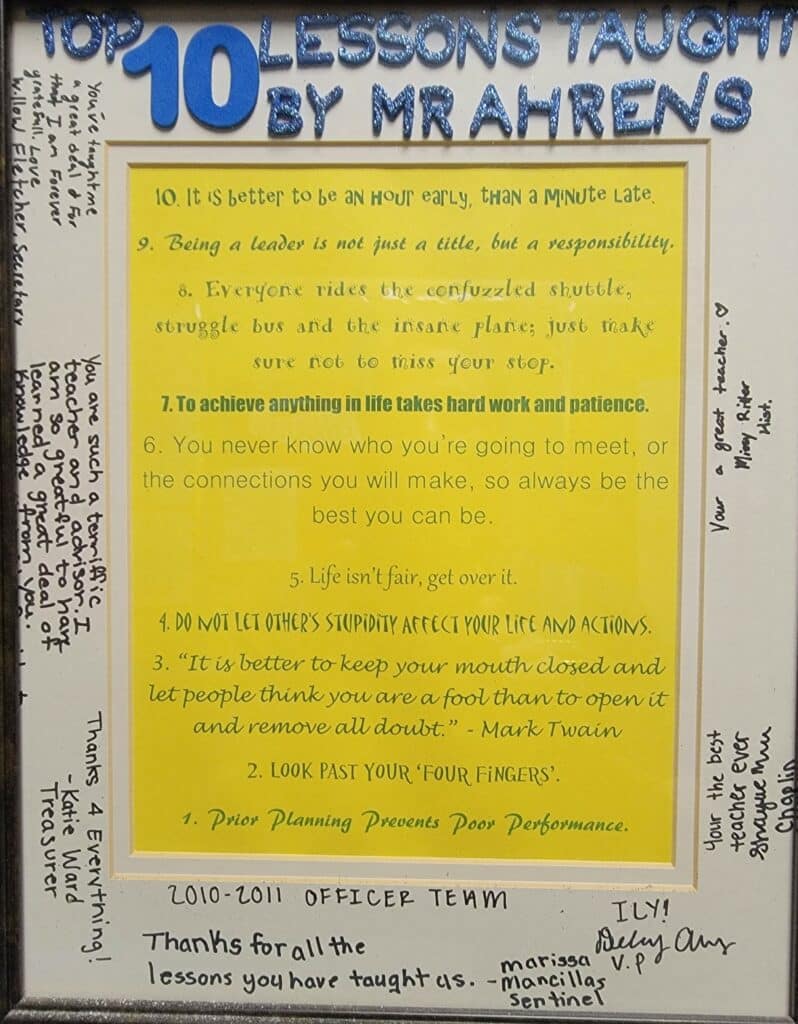 TOP 10 LESSONS TAUGHT
BY MR AHRENS
10. It is better to be an hour early, than a minute late.
9. Being a leader is not just a title, but a responsibility.
8. Everyone rides the confuzzled shuttle,
struggle bus and the insane plane; just make
sure not to miss your stop.
7. To achieve anything in life takes hard work and patience.
6. You never know who you're going to meet, or
the connections you will make, so always be the
best you can be.
5. Life isn't fair, get over it.
4. DO NOT LET OTHER'S STUPIDITY AFFECT YOUR LIFE AND ACTIONS.
3. “It is better to keep your mouth closed and
let people think you are a fool than to open it
and remove all doubt.” - Mark Twain
2. LOOK PAST YOUR ‘FOUR FINGERS’.
1. Prior Planning Prevents Poor Performance.
You've taught me
a great deal & For
that I am Forever
gratefull. Love
Willow Fletcher, Secretary
You are such a terriffic
teacher and advisor. I
am so greatful to hav
learned a great deal of
knowledge from you.
Thanks 4 Everything!
- Katie Ward
Treasurer
Your a great teacher. ♡
Missy Ritter
Hist.
Your the best
teacher ever
Chaplin
2010-2011 OFFICER TEAM
Thanks for all the
lessons you have taught us. - marissa
mancillas
Sentinel
ILY!
V.P